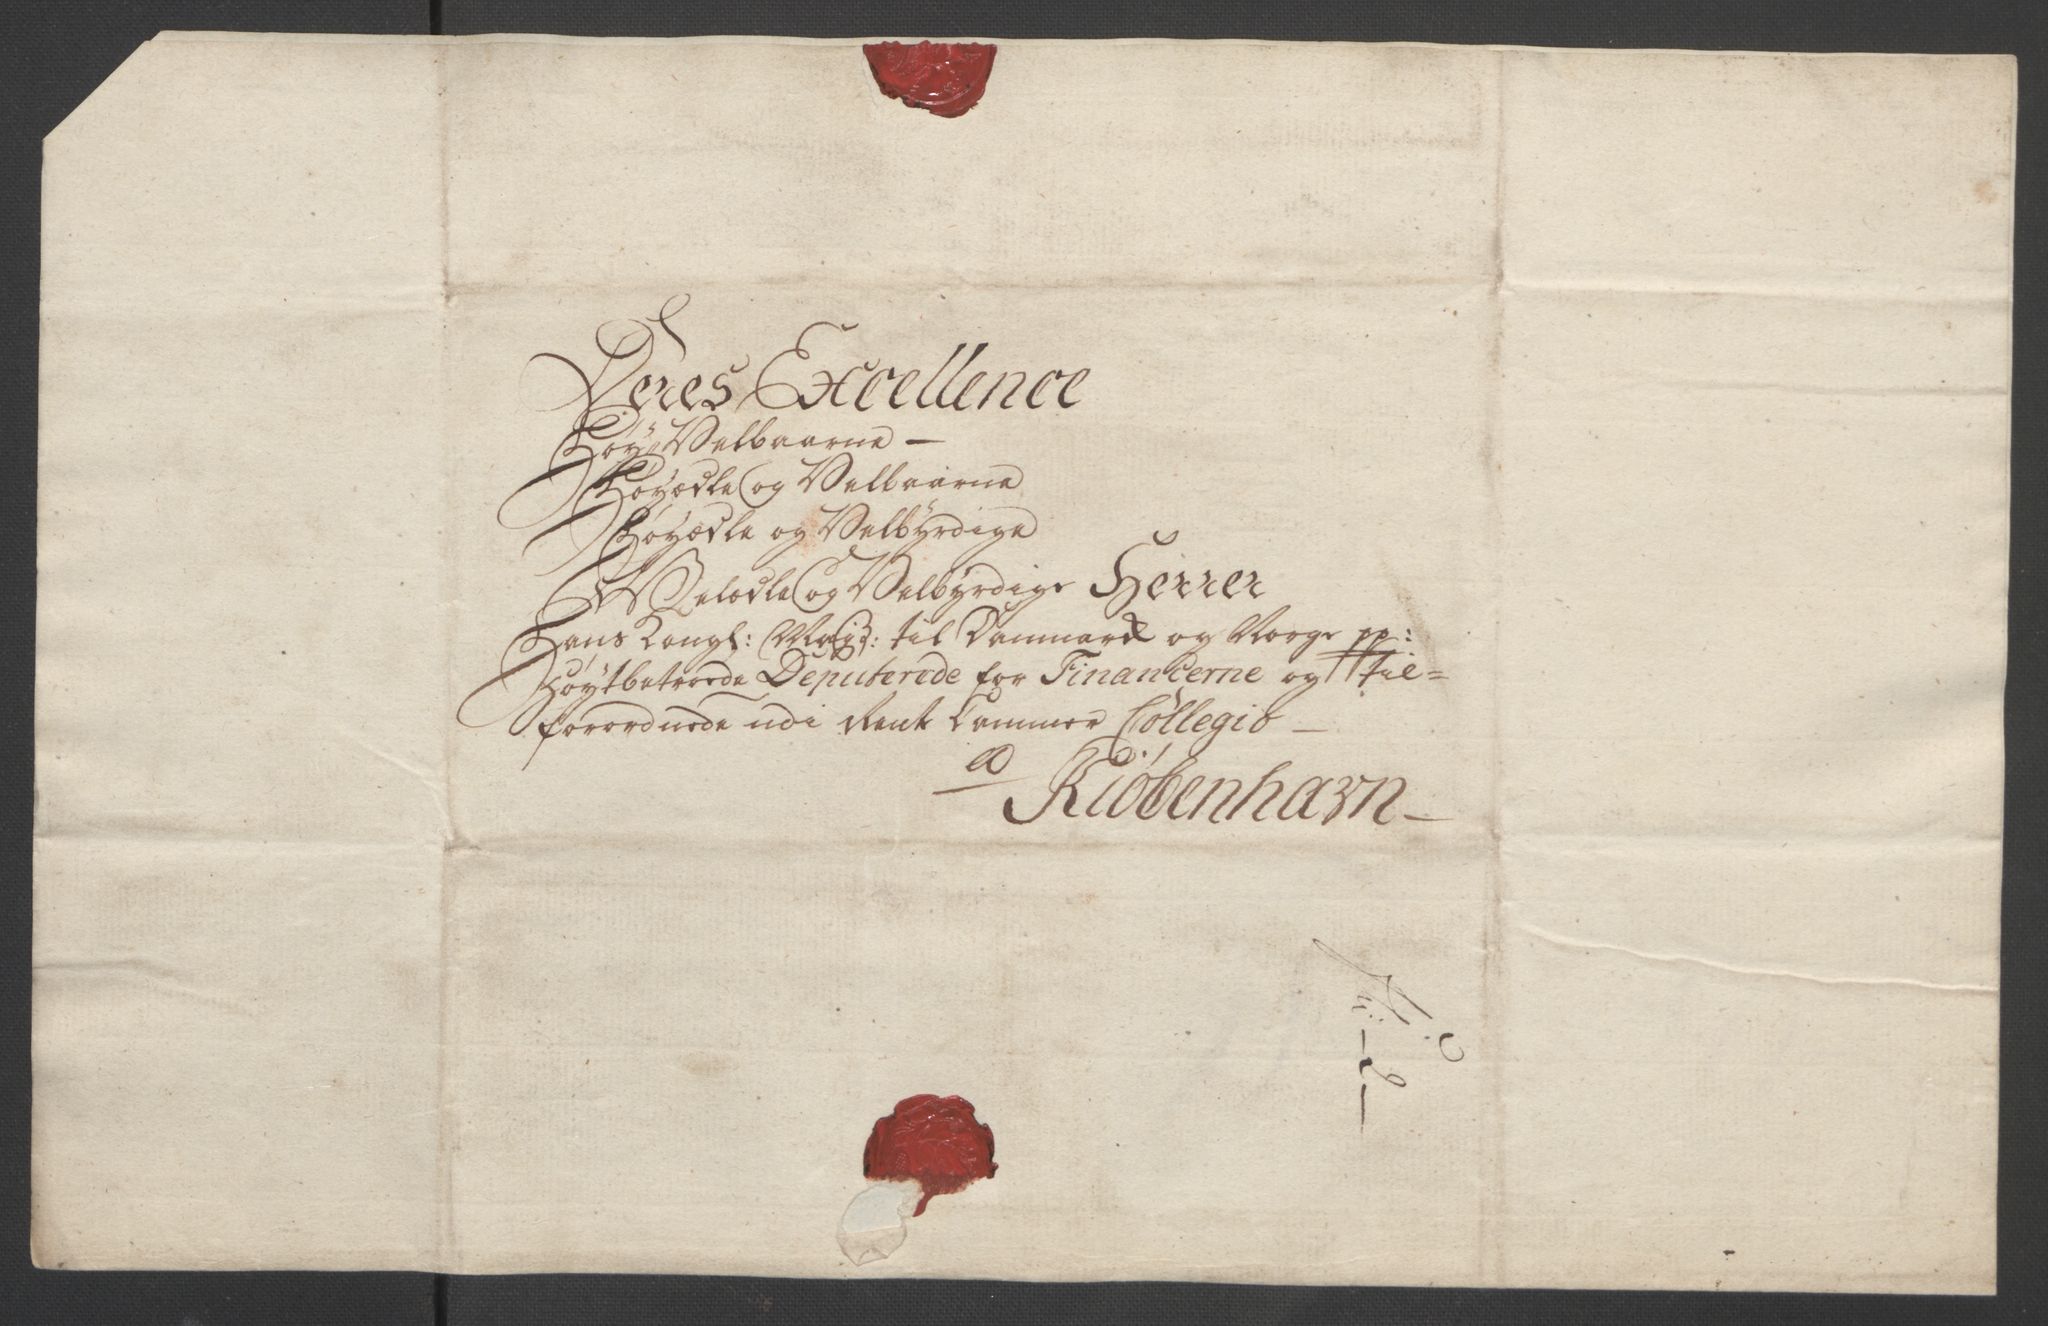 Deres Excellence
Høy Velbaarne –
Høyædle og Velbaarne
Høyædle og Velbyrdige
Velædle og Velbyrdige Herrer
Hans Kongl: Mayst: til Danmark og Norge pp:
Høytbetroede Deputerede for Financerne og til=
forordnede udi Rente Cammer Collegio –
a
Kiøbenhavn –